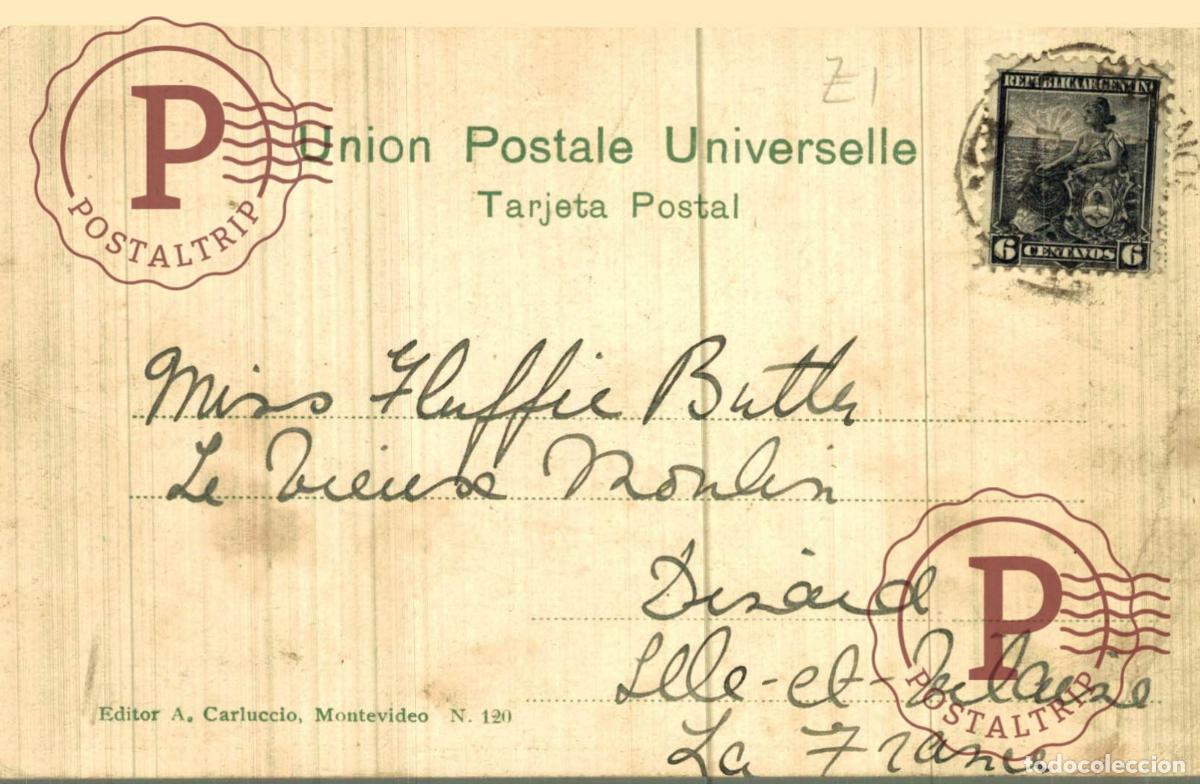 Z1
REPUBLICA ARGENTINA
6 CENTAVOS 6
P
POSTALTRIP
Union Postale Universelle
Tarjeta Postal
Miss Fluffie Butler
Le Vieux Moulin
Dinard
Ille-et-Vilaine
La France
Editor A. Carluccio, Montevideo N. 120
P
POSTALTRIP
todocoleccion